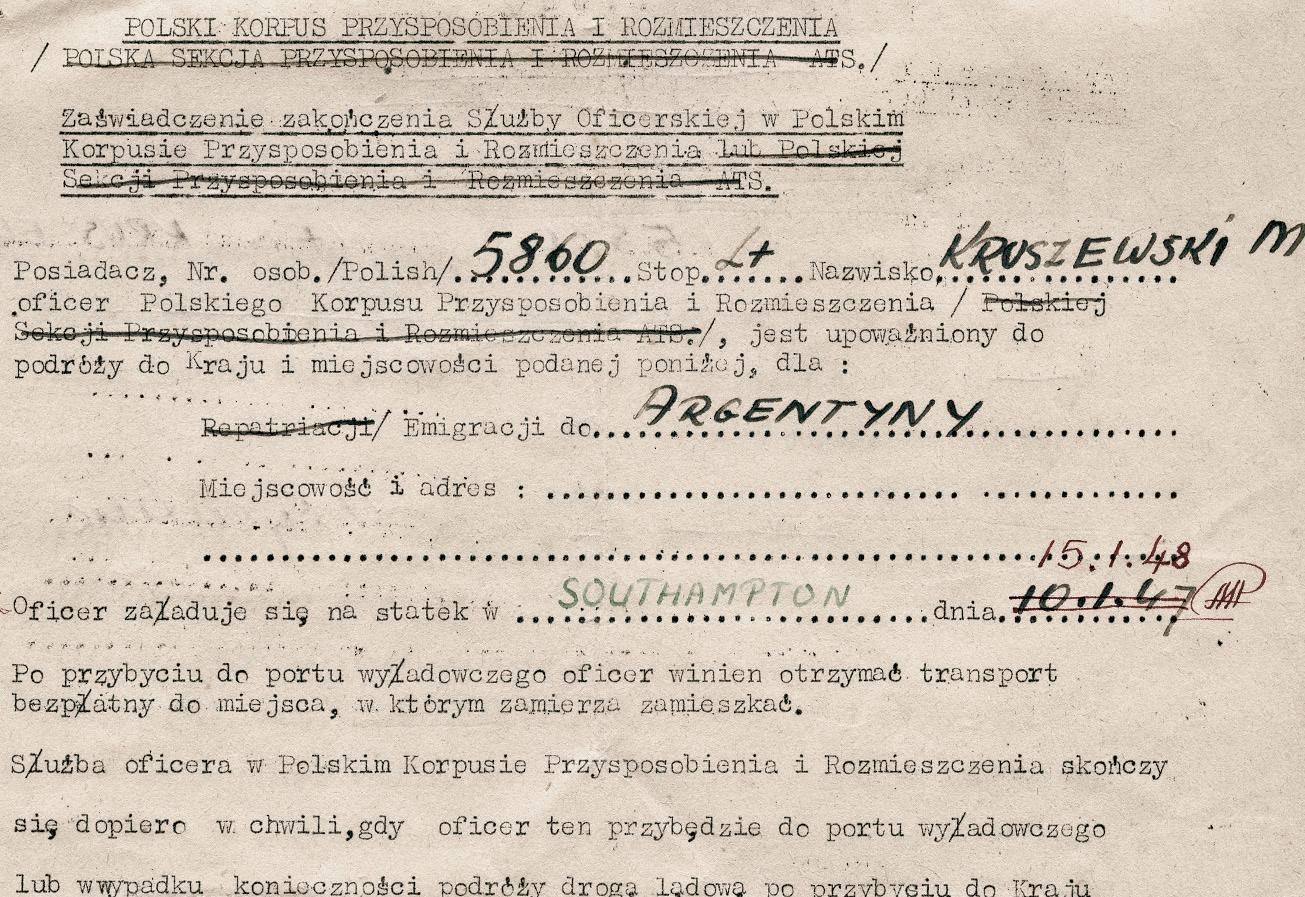 POLSKI KORPUS PRZYSPOSOBIENIA I ROZMIESZCZENIA
/ POLSKA SEKCJA PRZYSPOSOBIENIA I ROZMIESZCZENIA ATS./
Zaświadczenie zakończenia Służby Oficerskiej w Polskim
Korpusie Przysposobienia i Rozmieszczenia lub Polskiej
Sekcji Przysposobienia i Rozmieszczenia ATS.
Posiadacz, Nr. osob./Polish/..5860..Stop........Nazwisko.KRUSZEWSKI M
oficer Polskiego Korpusu Przysposobienia i Rozmieszczenia / Polskiej
Sekcji Przysposobienia i Rozmieszczenia ATS./, jest upoważniony do
podróży do Kraju i miejscowości podanej poniżej, dla :
Repatriacji/ Emigracji do...ARGENTYNY...............
Miejscowość i adres : ........................... .............
...........................................................15.1.48
Oficer załaduje się na statek w ...SOUTHAMPTON......dnia.10.1.47
Po przybyciu do portu wyładowczego oficer winien otrzymać transport
bezpłatny do miejsca, w którym zamierza zamieszkać.
Służba oficera w Polskim Korpusie Przysposobienia i Rozmieszczenia skończy
się dopiero w chwili,gdy oficer ten przybędzie do portu wyładowczego
lub wwypadku konieczności podróży drogą lądową po przybyciu do Kraju